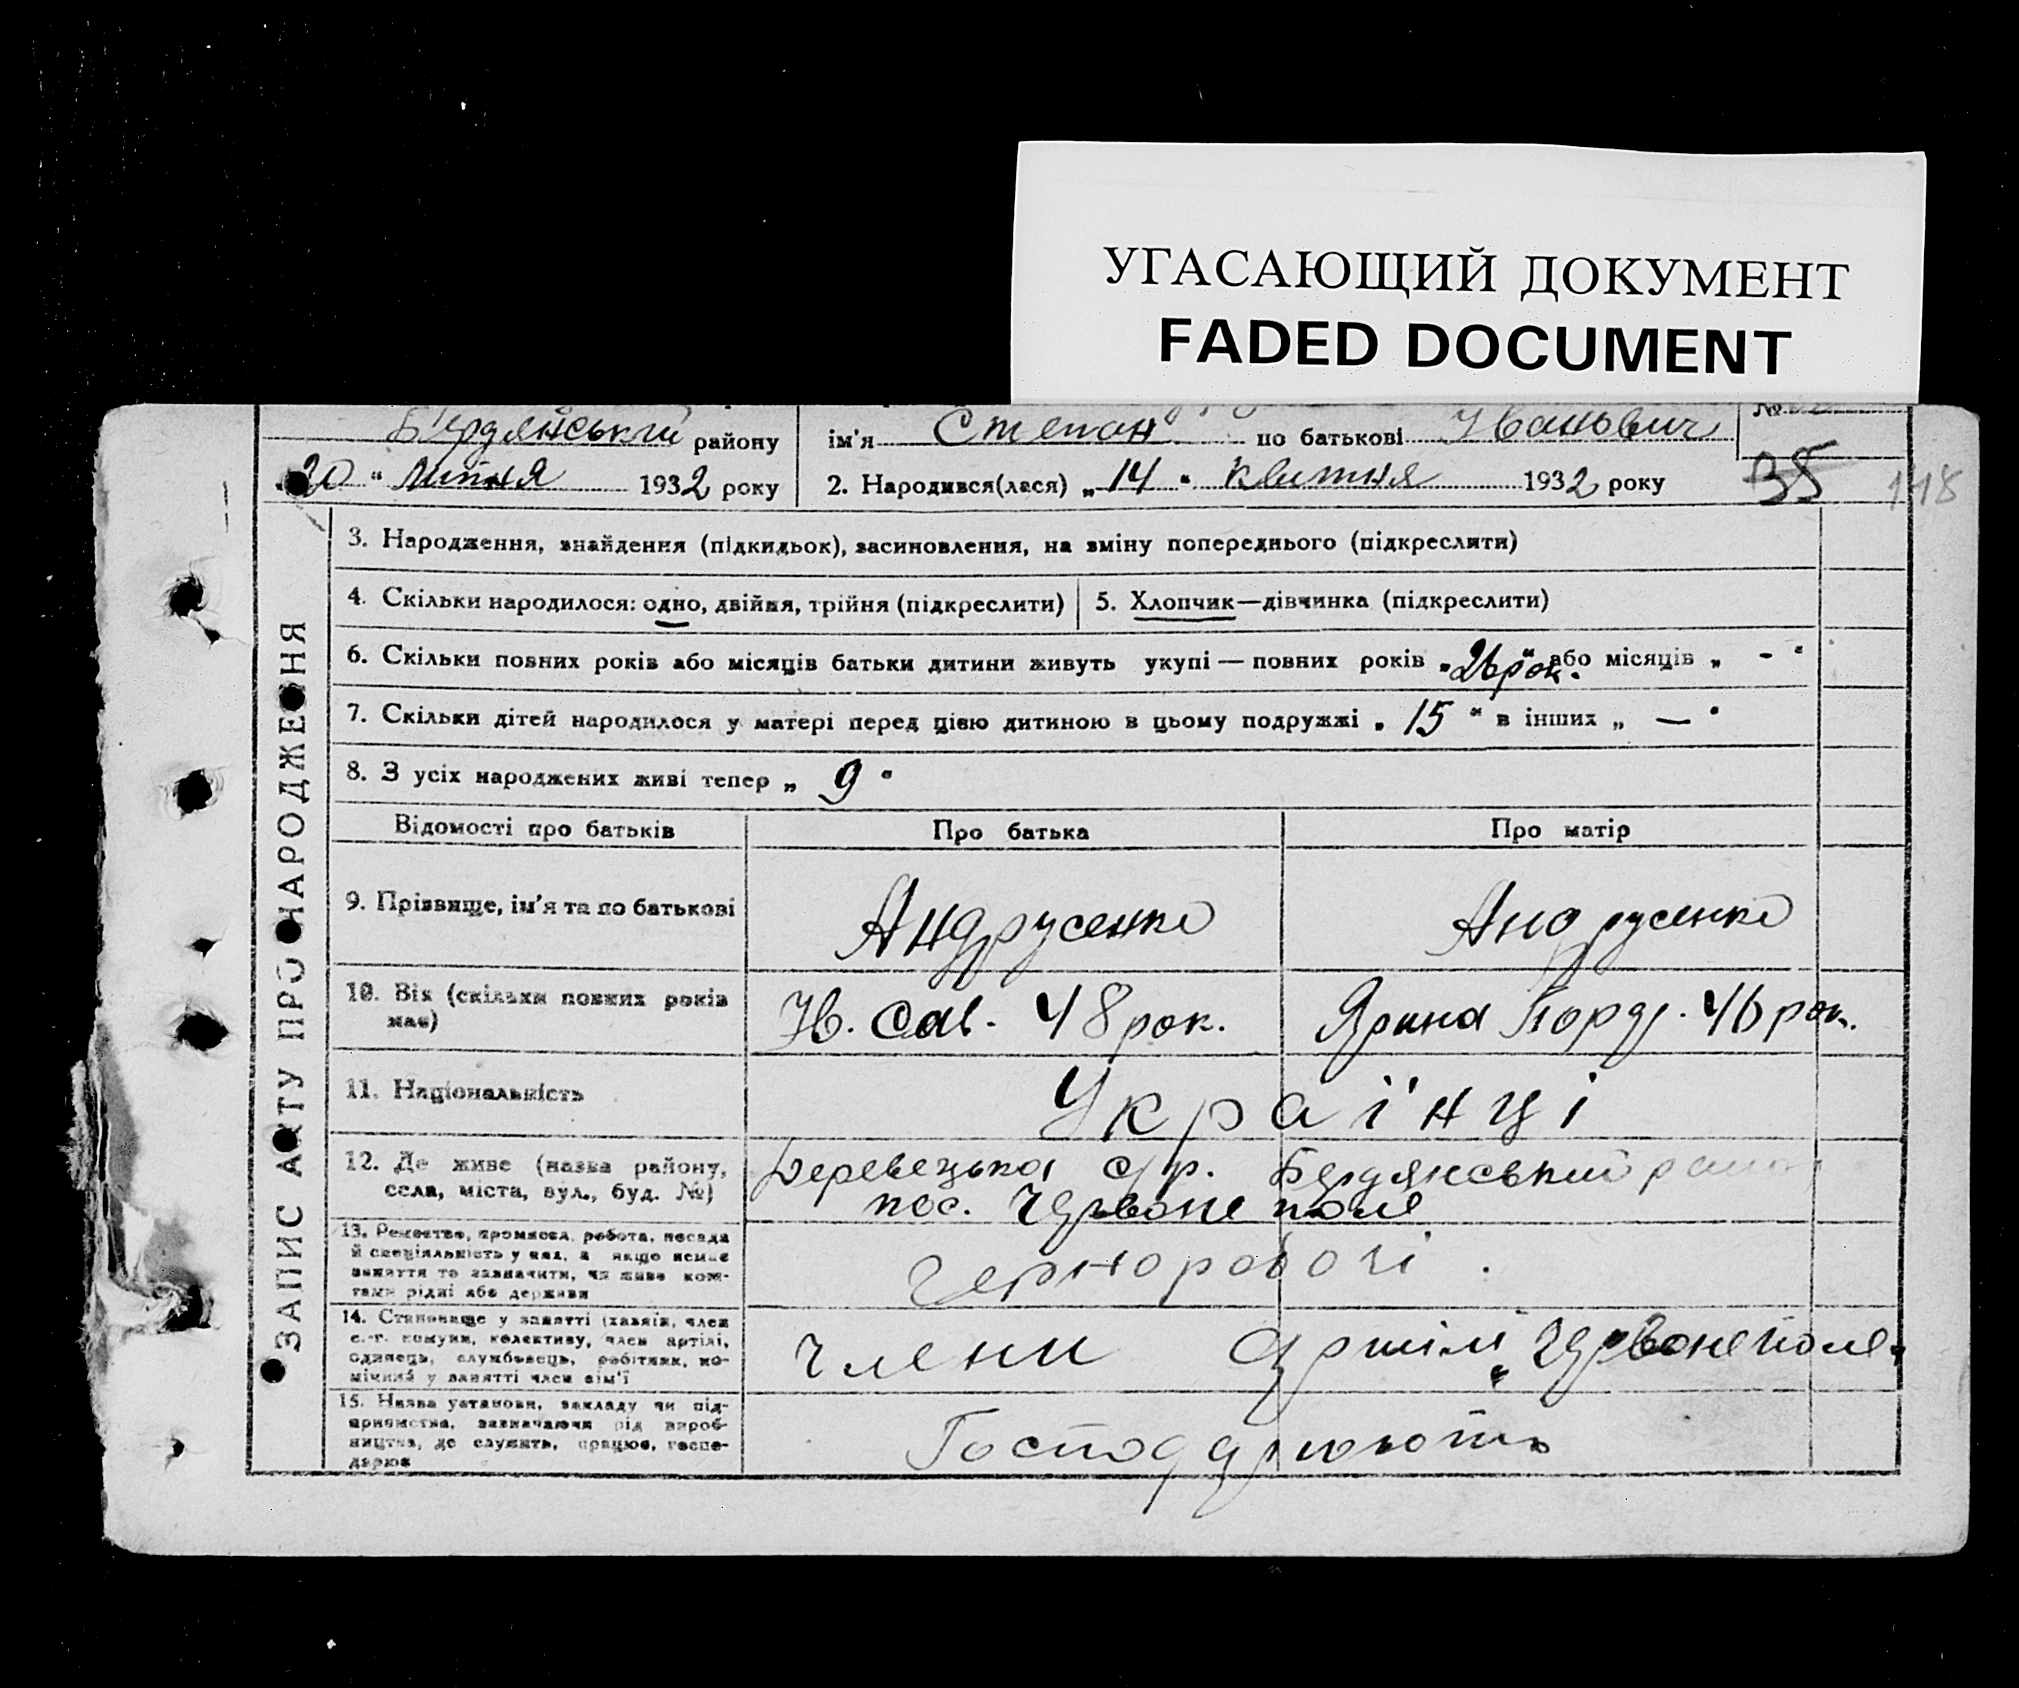 УГАСАЮЩИЙ ДОКУМЕНТ
FADED DOCUMENT
Бердянський району
ім'я Степан по батькові Іванович
№
20 " Липня 1932 року
2. Народився(лася) „ 14 " Квітня 1932 року
35
118
3. Народження, знайдення (підкидьок), засиновлення, на зміну попереднього (підкреслити)
4. Скільки народилося: одно, двійня, трійня (підкреслити)
5. Хлопчик—дівчинка (підкреслити)
6. Скільки повних років або місяців батьки дитини живуть укупі — повних років „ 26 рок. " або місяців „ - "
7. Скільки дітей народилося у матері перед цією дитиною в цьому подружжі „ 15 " в інших „ — "
8. З усіх народжених живі тепер „ 9 "
ЗАПИС АКТУ ПРО НАРОДЖЕННЯ
Відомості про батьків
Про батька
Про матір
9. Прізвище, ім'я та по батькові
Андрусенко
Андрусенко
10. Вік (скільки повних років
має)
Ів. Сав. 48 рок.
Ярина 46 рок.
11. Національність
Українці
12. Де живе (назва району,
села, міста, вул., буд. №)
с/р. Бердянський район
пос. Червоне поле
13. Ремество, промисел, робота, посада
й спеціяльність у ній, а якщо немає
заняття то зазначити, чи живе кош-
тами рідні або держави
Чорноробочі.
14. Становище у занятті (хазяїн, член
с.-г. комуни, колективу, член артілі,
одинець, службовець, робітник, по-
мічний у занятті член сім'ї
члени артілі „Червоне поле"
15. Назва установи, закладу чи під-
приємства, зазначаючи рід вироб-
ництва, де служить, працює, госпо-
дарює
Господарюють